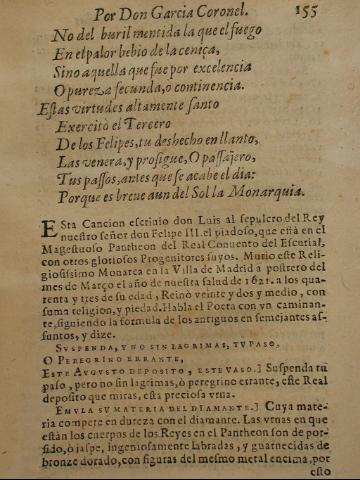 Por Don Garcia Coronel. 155
No del buril mentida la que el fuego
En el palor bebio de la ceniça,
Sino aquella que fue por excelencia
O pureza fecunda, o continencia.
Estas virtudes altamente santo
Exercitò el Tercero
De los Felipes, tu deshecho en llanto,
Las venera, y prosigue, O passajero,
Tus passos, antes que se acabe el dia:
Porque es breue aun del Sol la Monarquia.
ESta Cancion escriuio don Luis al sepulcro del Rey
nuestro señor don Felipe III. el piadoso, que està en el
Magestuoso Pantheon del Real Conuento del Escurial,
con otros gloriosos Progenitores suyos. Murio este Reli-
giosissimo Monarca en la Villa de Madrid a postrero del
mes de Março el año de nuestra salud de 1621. a los qua-
renta y tres de su edad, Reinò veinte y dos y medio, con
suma religion, y piedad. Habla el Poeta con vn caminan-
te, siguiendo la formula de los antiguos en semejantes as-
suntos, y dize.
SVSPENDA, Y NO SIN LAGRIMAS, TV PASO,
O PEREGRINO ERRANTE,
ESTE AVGVSTO DEPOSITO, ESTE VASO.] Suspenda tu
paso, pero no sin lagrimas, ò peregrino errante, este Real
deposito que miras, esta preciosa vrna.
EMVLA SV MATERIA DEL DIAMANTE.] Cuya mate-
ria compete en dureza con el diamante. Las vrnas en que
estàn los cuerpos de los Reyes en el Pantheon son de por-
fido, ò jaspe, ingeniosamente labradas, y guarnecidas de
bronze dorado, con figuras del mesmo metal encima, por
esto